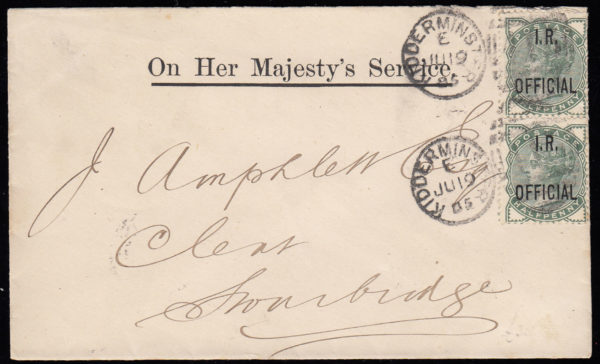 On Her Majesty's Service
KIDDERMINSTER
E
JU 19
85
I.R.
OFFICIAL
HALFPENNY
KIDDERMINSTER
E
JU 19
85
I.R.
OFFICIAL
HALFPENNY
J. Amphlett Esq
Clent
Stourbridge